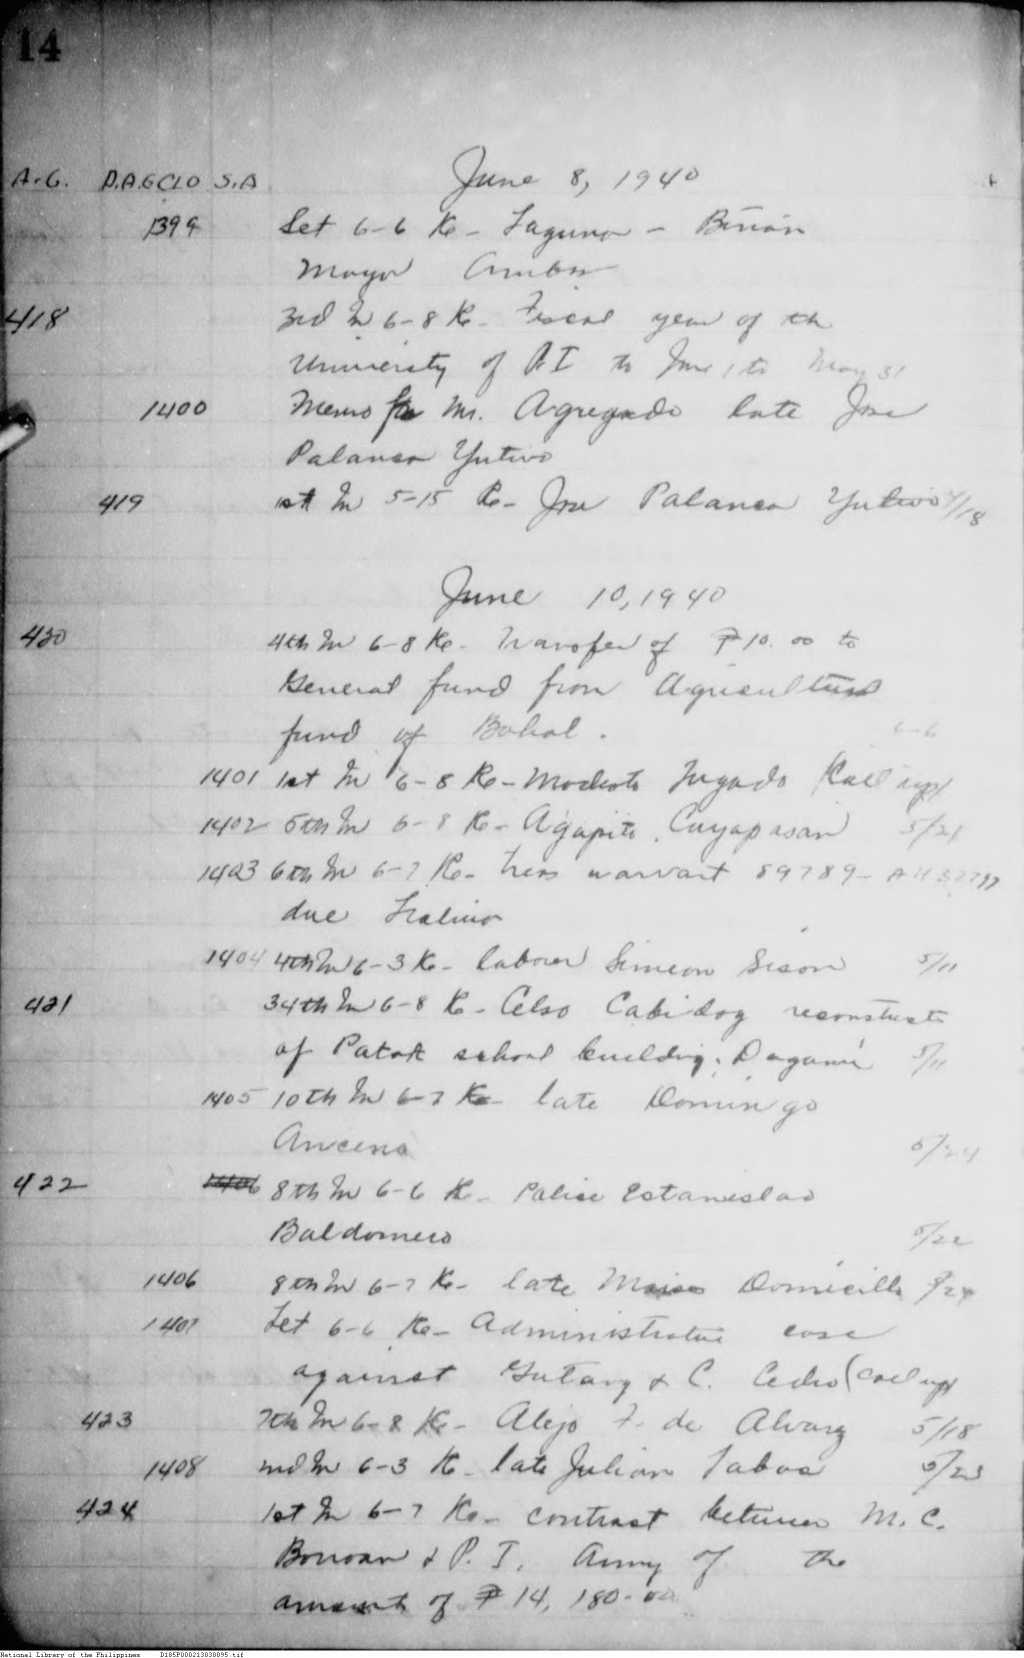 14
A.G. D.A.G CLO S.A June 8, 1940
1399 Let 6-6 Re- Laguna - Biñan
Mayor
418 3rd In 6-8 Re- Fiscal year of the
University of P.I to June 1 to May 31
1400 Memo for Mr. Agregado late Jose
Palanca Yutivo
419 1st In 5-15 Re- Jose Palanca Yutivo 4/18
June 10, 1940
420 4th In 6-8 Re- Transfer of ₱10.00 to
General fund from Agricultural
fund of Bohol. 6-6
1401 1st In 6-8 Re- Modesto Jugado (Call up)
1402 5th In 6-8 Re- Agapito Cuyapasan 5/21
1403 6th In 6-7 Re- Treas warrant 89789-
due
1404 4th In 6-3 Re- laborer Simeon Sison 5/11
421 34th In 6-8 Re- Celso Cabidog reconstructn
of Patok school building. Dagami 5/11
1405 10th In 6-7 Re- late Domingo
Ancena 5/24
422 1406 8th In 6-6 Re- Police Estanislao
Baldomero 5/22
1406 8th In 6-7 Re- late Domicillo
1407 Let 6-6 Re- Administrative case
against Gutang & C. Cedro (Call up)
423 7th In 6-8 Re- Alejo F. de Alvarez 5/18
1408 2nd In 6-3 Re- late Julian Tabos 5/23
424 1st In 6-7 Re- contract between M.C.
Borroan & P.I. Army of the
amount of ₱14,180.00
National Library of the Philippines D185P000213838095.tif